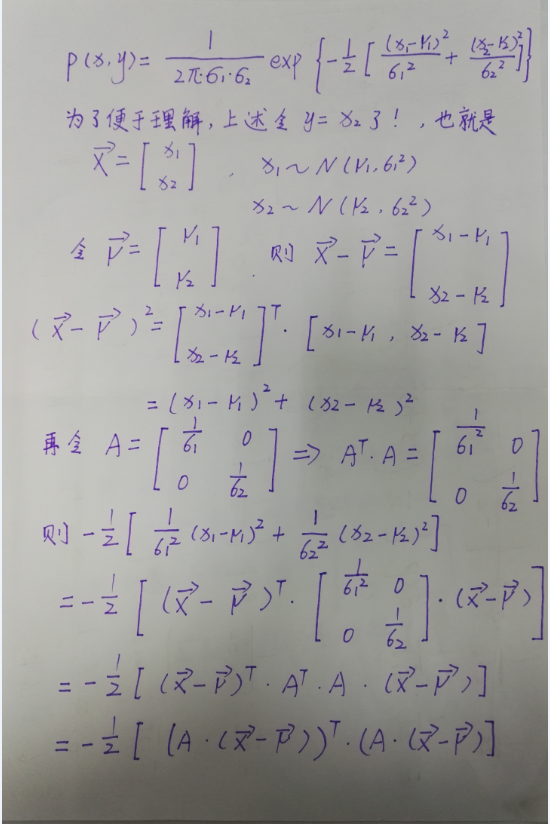 p(x,y)= 1/(2π·σ1·σ2) exp{-1/2[(x1-μ1)²/σ1² + (x2-μ2)²/σ2²]}
为了便于理解,上述令 y=x2了!,也就是
X⃗=[x1; x2], x1~N(μ1,σ1²)
x2~N(μ2,σ2²)
令 μ⃗=[μ1; μ2]. 则 X⃗-μ⃗=[x1-μ1; x2-μ2]
(X⃗-μ⃗)²=[x1-μ1; x2-μ2]ᵀ·[x1-μ1, x2-μ2]
=(x1-μ1)²+(x2-μ2)²
再令 A=[1/σ1 0; 0 1/σ2] ⇒ Aᵀ·A=[1/σ1² 0; 0 1/σ2]
则 -1/2[1/σ1²(x1-μ1)²+1/σ2²(x2-μ2)²]
=-1/2[(X⃗-μ⃗)ᵀ·[1/σ1² 0; 0 1/σ2]·(X⃗-μ⃗)]
=-1/2[(X⃗-μ⃗)ᵀ·Aᵀ·A·(X⃗-μ⃗)]
=-1/2[(A·(X⃗-μ⃗))ᵀ·(A·(X⃗-μ⃗)]